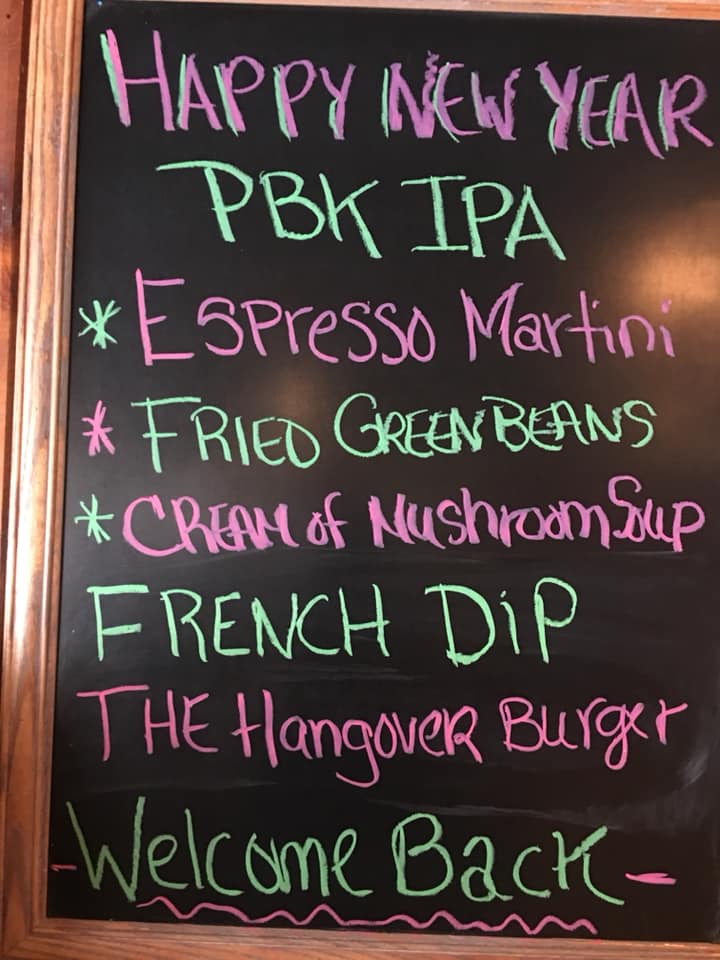 HAPPY NEW YEAR
PBK IPA
* Espresso Martini
* FRIED GREEN BEANS
* CREAM of Mushroom Soup
FRENCH DiP
THE Hangover Burger
- Welcome Back -